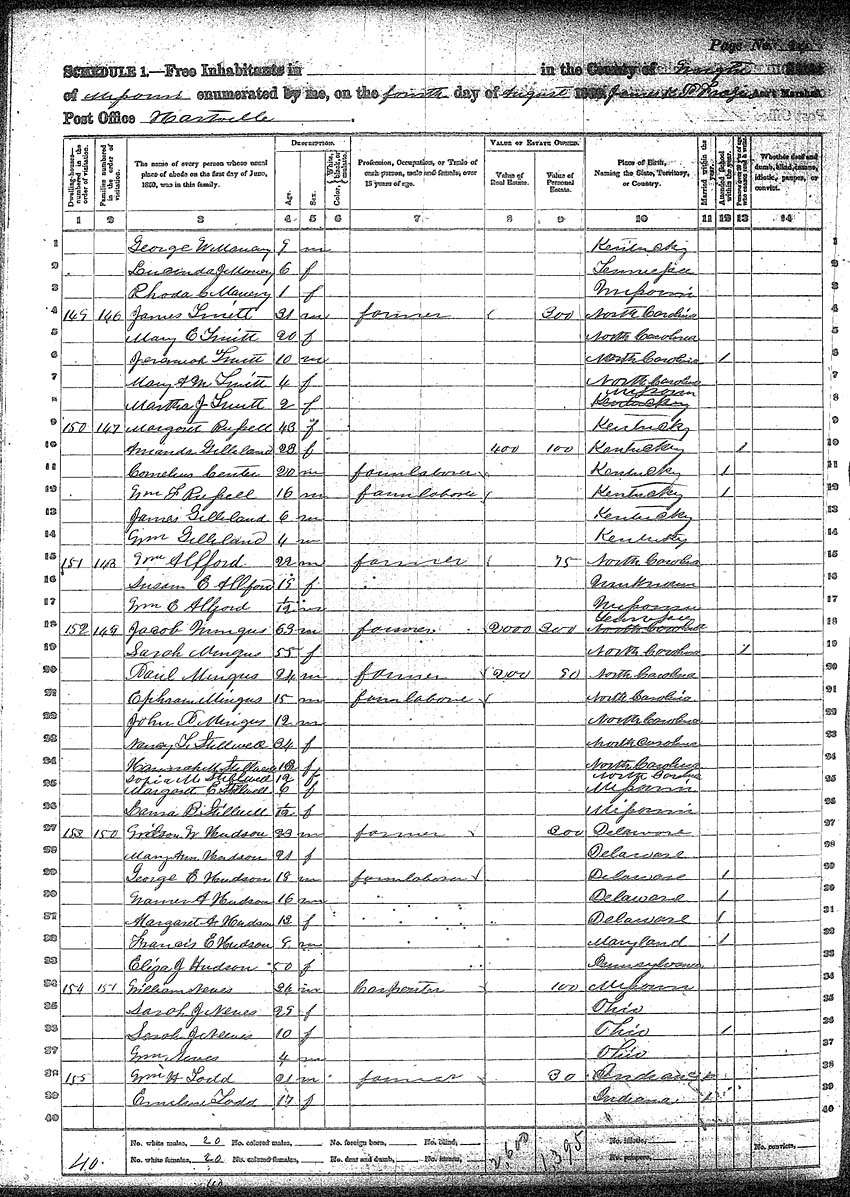 Page No.
SCHEDULE 1.—Free Inhabitants in in the County of Wright State
of Missouri enumerated by me, on the fourth day of August 1860. Ass't Marshal
Post Office Hartville
DESCRIPTION. VALUE OF ESTATE OWNED.
Dwelling-houses—numbered in the order of visitation. Families numbered in the order of visitation. The name of every person whose usual place of abode on the first day of June, 1860, was in this family. Age. Sex. Color, White, black, or mulatto. Profession, Occupation, or Trade of each person, male and female, over 15 years of age. Value of Real Estate. Value of Personal Estate. Place of Birth, Naming the State, Territory, or Country. Married within the year. Attended School within the year. Persons over 20 y'rs of age who cannot read & write. Whether deaf and dumb, blind, insane, idiotic, pauper, or convict.
1 2 3 4 5 6 7 8 9 10 11 12 13 14
1 George W 9 m Kentucky 1
2 Lucinda J 6 f Tennessee 2
3 Rhoda C 1 f Missouri 3
4 149 146 James Truitt 31 m farmer 300 North Carolina 4
5 Mary C Truitt 20 f North Carolina 5
6 Jeremiah Truitt 10 m North Carolina 1 6
7 Mary A M Truitt 4 f North Carolina 7
Missouri
8 Martha J Truitt 2 f Kentucky 8
9 150 147 Margaret Russell 43 f Kentucky 9
10 Amanda Gilleland 23 f 400 100 Kentucky 1 10
11 Cornelius Center 20 m farm laborer Kentucky 1 11
12 Wm F Russell 16 m farm laborer Kentucky 1 12
13 James Gilleland 6 m Kentucky 13
14 Wm Gilleland 4 m Kentucky 14
15 151 148 Wm Allford 22 m farmer 75 North Carolina 15
16 Susan E Allford 19 f Unknown 16
17 Wm C Allford 1/12 m Missouri 17
Tennessee
18 152 149 Jacob Mingus 63 m farmer 2000 300 North Carolina 18
19 Sarah Mingus 55 f North Carolina 1 19
20 Mingus 24 m farmer 200 90 North Carolina 20
21 Ephraim Mingus 15 m farm laborer North Carolina 21
22 John D Mingus 12 m North Carolina 22
23 Nancy L Stillwell 34 f North Carolina 23
24 Hannah M Stillwell 13 f North Carolina 24
Sofia M Stillwell 12 f North Carolina
25 Margaret E Stillwell 6 f Missouri 25
26 Stillwell f Missouri 26
27 153 150 W Hudson 23 m farmer 200 Delaware 27
28 Mary Ann Hudson 21 f Delaware 28
29 George E Hudson 18 m farm laborer Delaware 1 29
30 A Hudson 16 m Delaware 1 30
31 Margaret A Hudson 13 f Delaware 1 31
32 Francis E Hudson 9 m Maryland 1 32
33 Eliza J Hudson 50 f Pennsylvania 33
34 154 151 William Neves 24 m Carpenter 100 Missouri 34
35 Sarah J Neves 29 f Ohio 35
36 Sarah J Neves 10 f Ohio 1 36
37 Wm Neves 4 m Ohio 37
38 155 Wm H Todd 21 m farmer 30 Indiana 38
39 Emeline Todd 17 f Indiana 1 39
40 40
40. No. white males, 20 No. colored males, No. foreign born, No. blind, 2,600 1,395 No. idiotic, No. convicts,
No. white females, 20 No. colored females, No. deaf and dumb, No. insane, No. paupers,